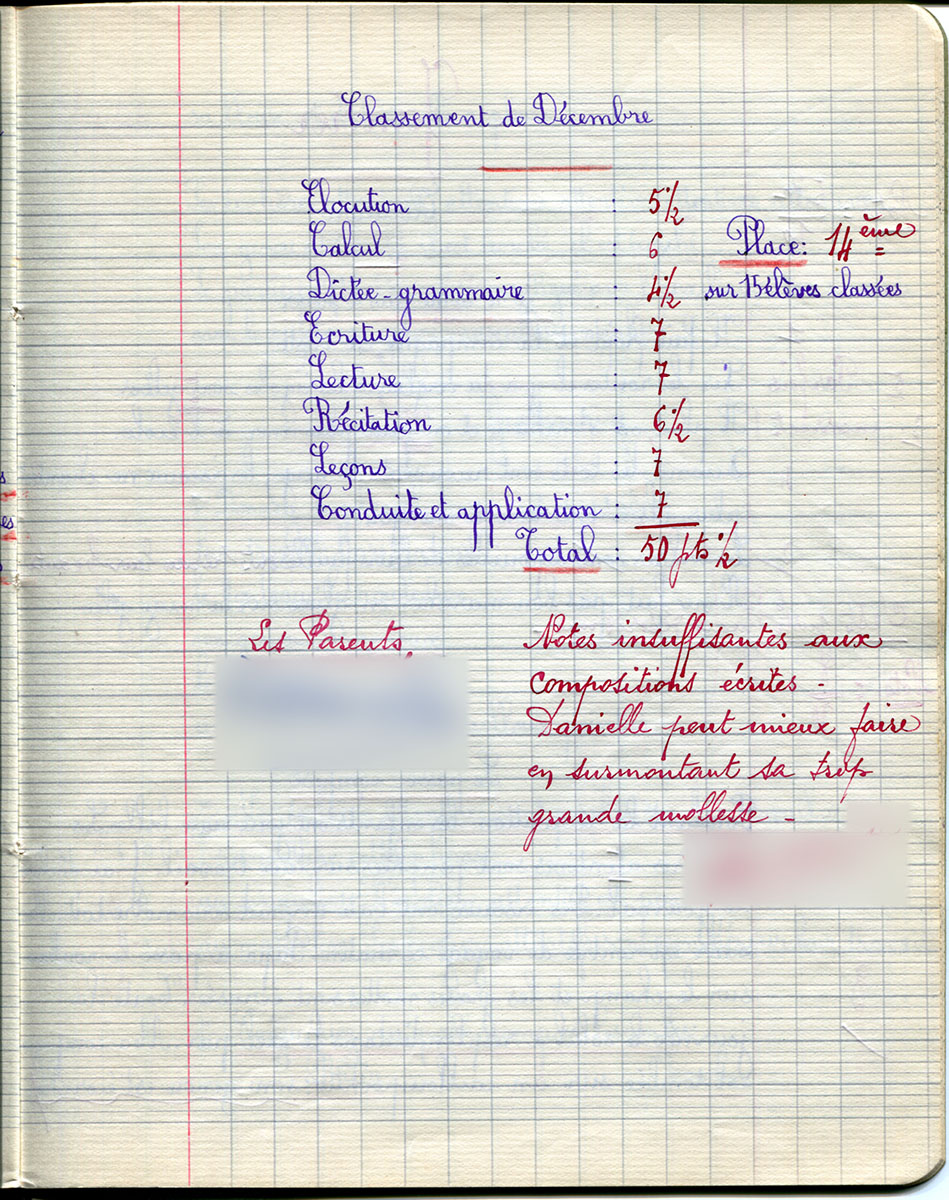 Classement de Décembre
Elocution : 5 1/2
Calcul : 6
Place: 14ème
Dictée-grammaire : 4 1/2
sur 15 élèves classées
Ecriture : 7
Lecture : 7
Récitation : 6 1/2
Leçons : 7
Conduite et application : 7
Total : 50 pts 1/2
Les Parents.
Notes insuffisantes aux
compositions écrites -
Danielle peut mieux faire
en surmontant sa trop
grande mollesse -